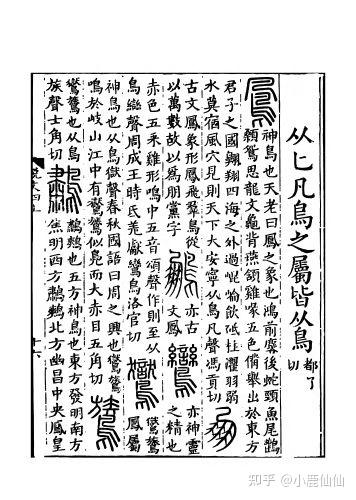 从匕凡鳥之屬皆从鳥 都了切
鳳 神鳥也天老曰鳳之象也鴻前麐後蛇頭魚尾鸛
顙鴛思龍文龜背燕頷雞喙五色備舉出於東方
君子之國翺翔四海之外過崐崘飲砥柱濯羽弱
水莫宿風穴見則天下大安寧从鳥凡聲馮貢切 朋
古文鳳象形鳳飛羣鳥從
以萬數故以為朋黨字 鵬 亦古文鳳 鸞 亦神靈之精也
赤色五采雞形鳴中五音頌聲作則至从
鳥䜌聲周成王時氐羌獻鸞鳥洛官切 鸑 鸑鷟鳳屬
神鳥也从鳥獄聲春秋國語曰周之興也鸑鷟
鳴於岐山江中有鸑鷟似鳧而大赤目五角切 鷟
鸑鷟也从鳥
族聲士角切 鷫 鷫鷞也五方神鳥也東方發明南方
焦明西方鷫鷞北方幽昌中央鳳皇
十六
知乎 @小鹿仙仙